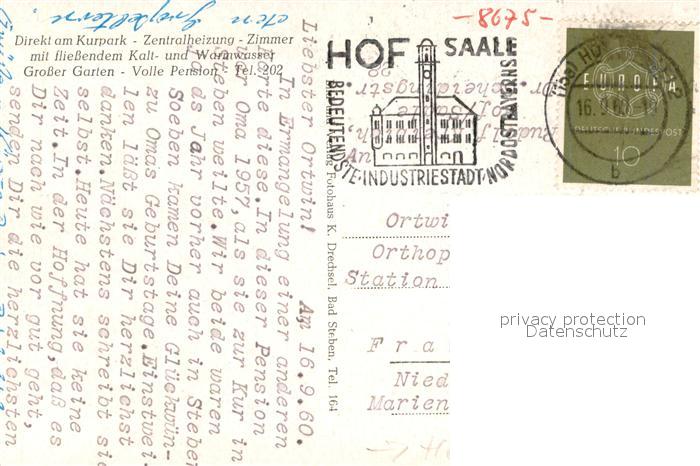 Direkt am Kurpark - Zentralheizung - Zimmer
mit fließendem Kalt- und Warmwasser
Großer Garten - Volle Pension - Tel. 202
Am 16.9.60.
Liebster Ortwin!
In Ermangelung einer anderen
Karte diese. In dieser Pension
war Oma 1957, als sie zur Kur in
Steben weilte. Wir beide waren
das Jahr vorher auch in Steben
Soeben kamen Deine Glückwün-
zu Omas Geburtstage. Einstwei-
len läßt sie Dir herzlichst
danken. Nächstens schreibt sie
selbst. Heute hat sie keine
Zeit. In der Hoffnung, daß es
Dir nach wie vor gut geht,
senden Dir die herzlichsten
Fotohaus K. Drechsel, Bad Steben, Tel. 164
-8675-
HOF SAALE
BEDEUTENDSTE · INDUSTRIESTADT · NORDOSTBAYERNS
16.9.60
b
EUROPA
DEUTSCHE BUNDESPOST
10
An
Ortwi
Orthop
Station
Fra
Nied
Marien
privacy protection
Datenschutz